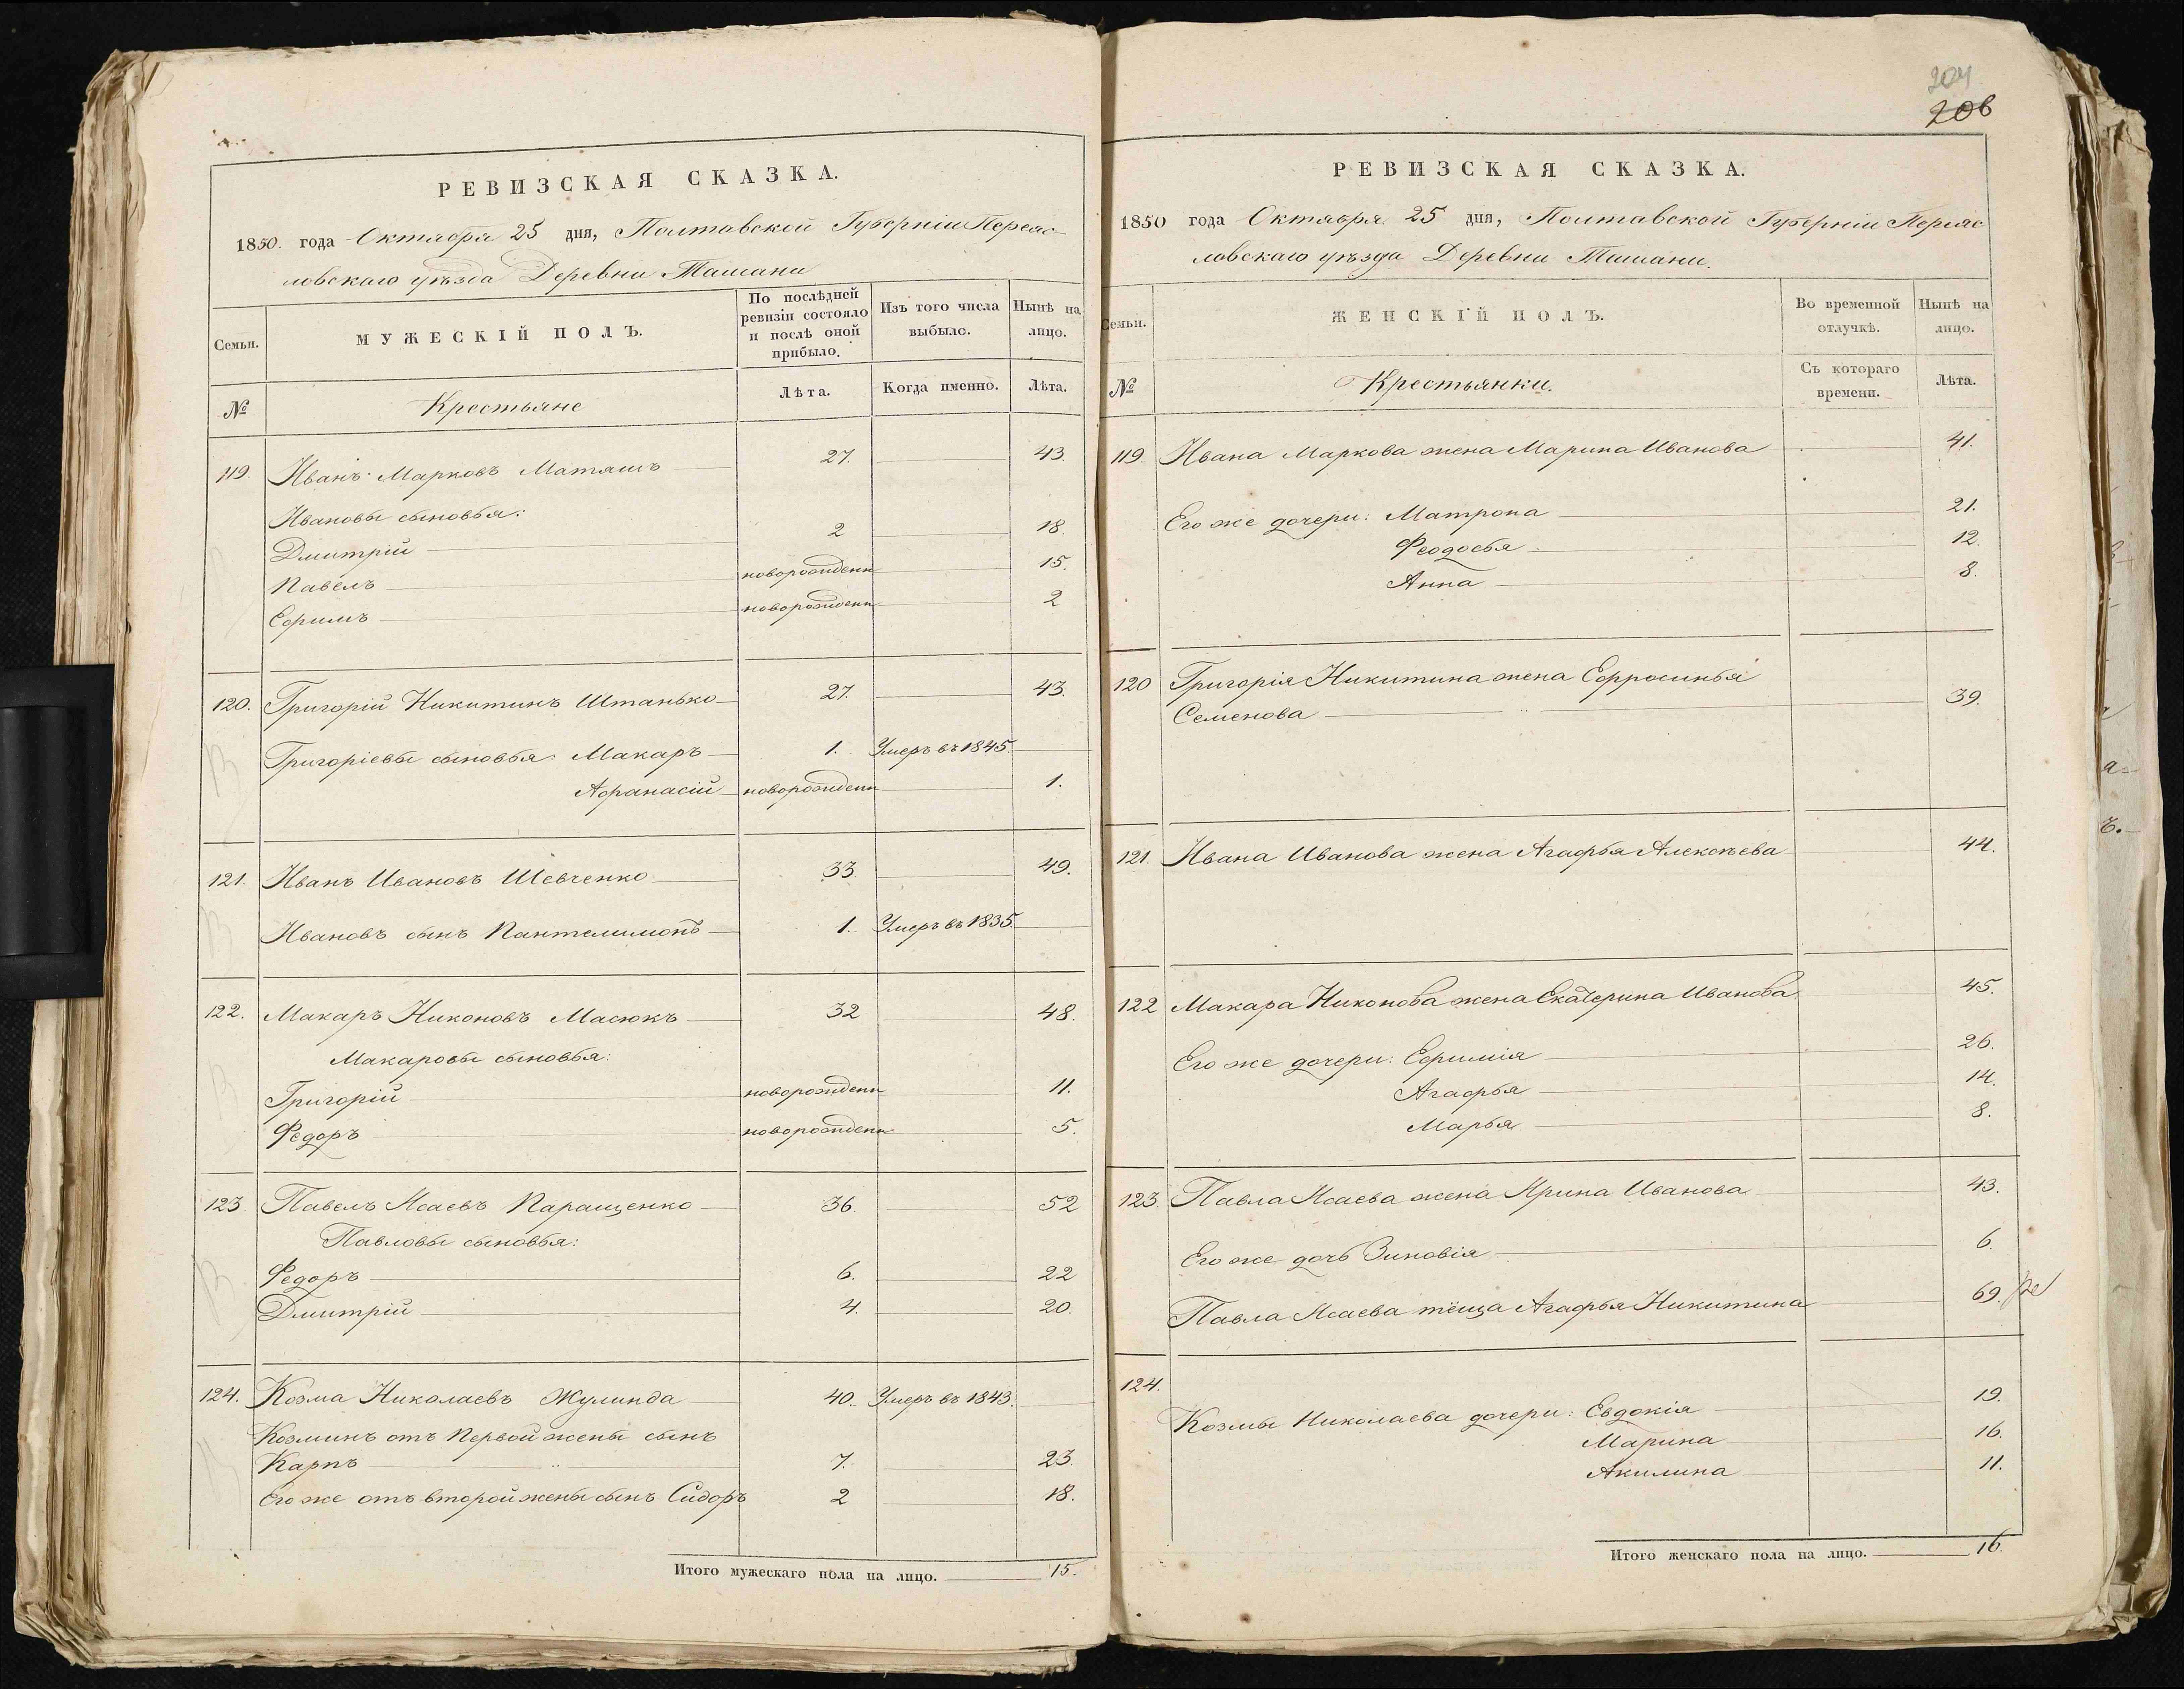 РЕВИЗСКАЯ СКАЗКА.
1850. года Октября 25 дня, Полтавской Губерніи Переяс-
ловскаго уѣзда Деревни Ташани
Семьи.
МУЖЕСКІЙ ПОЛЪ.
По послѣдней
ревизіи состояло
и послѣ оной
прибыло.
Изъ того числа
выбыло.
Нынѣ на
лицо.
№ Крестьяне Лѣта. Когда именно. Лѣта.
119. Иванъ Марковъ Матяшъ 27. 43.
Ивановы сыновья:
Дмитрій 2 18.
Павелъ новорожден 15.
Ефимъ новорожден 2
120. Григорій Никитинъ Штанько 27. 43.
Григоріевы сыновья: Макаръ 1. Умеръ въ 1845.
Афанасій новорожден 1.
121. Иванъ Ивановъ Шевченко 33. 49.
Ивановъ сынъ Пантелимонъ 1. Умеръ въ 1835.
122. Макаръ Никоновъ Масюкъ 32 48.
Макаровы сыновья:
Григорій новорожден 11.
Федоръ новорожден 5.
123. Павелъ Исаевъ Паращенко 36. 52
Павловы сыновья:
Федоръ 6. 22
Дмитрій 4. 20.
124. Козма Николаевъ Жулинда 40. Умеръ въ 1843.
Козминъ отъ первой жены сынъ
Карпъ 7. 23.
Его же отъ второй жены сынъ Сидоръ 2 18.
Итого мужескаго пола на лицо. 15.
204
206
РЕВИЗСКАЯ СКАЗКА.
1850 года Октября 25 дня, Полтавской Губерніи Переяс
ловскаго уѣзда Деревни Ташани.
Семьи.
ЖЕНСКІЙ ПОЛЪ.
Во временной
отлучкѣ.
Нынѣ на
лицо.
№ Крестьянки.
Съ котораго
времени.
Лѣта.
119. Ивана Маркова жена Марина Иванова 41.
Его же дочери: Матрона 21.
Феодосья 12.
Анна 8.
120 Григорія Никитина жена Ефросинья
Семенова 39.
121. Ивана Иванова жена Агафья Алексѣева 44.
122 Макара Никонова жена Екатерина Иванова 45.
Его же дочери: Ефимія 26.
Агафья 14.
Марья 8.
123. Павла Исаева жена Ирина Иванова 43.
Его же дочь Зиновія 6.
Павла Исаева тёща Агафья Никитина 69.
124.
Козмы Николаева дочери: Евдокія 19.
Марина 16.
Акилина 11.
Итого женскаго пола на лицо. 16.